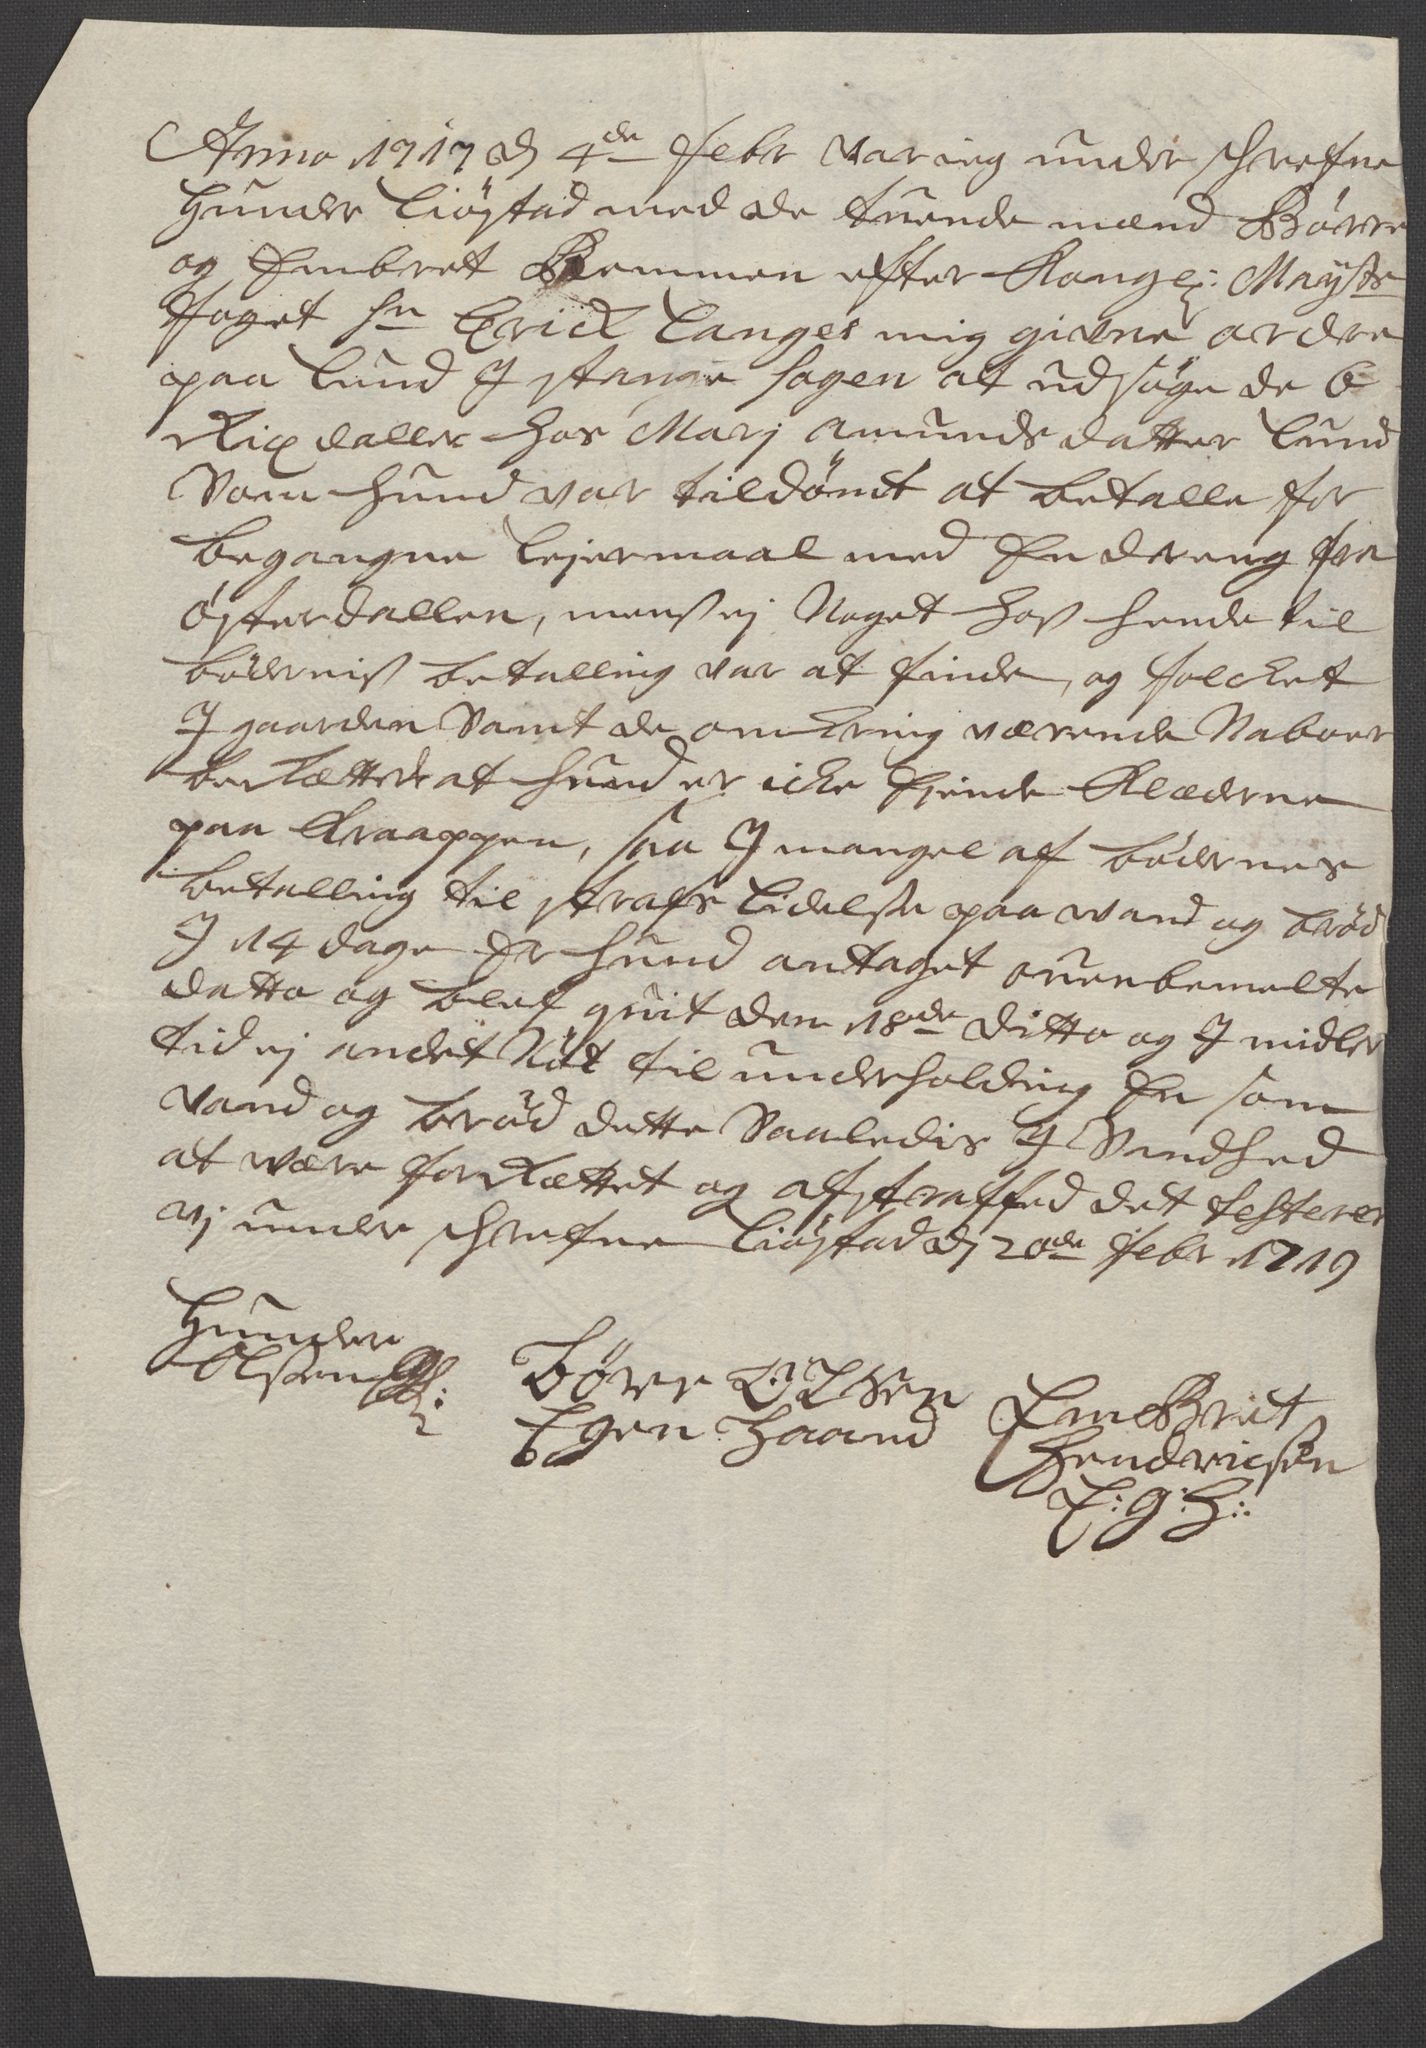 Anno 1717 d 4de Febr var ieg under schrefne
Hunder Liøstad med de tuende mænd Børre
og Embret Remmen efter Kongel: Mayts
foget hr Erick Langes mig givne ordre
paa Lund J stange sogen at udsøge de 6
Rixdaller hos Marj Amunds datter Lund
Som hund var tildømt at betalle for
begangne Lejermaal med En dreng fra
østerdallen, mens ej Noget hos hende til
bødernis betalling var at finde, og folcket
J gaarden Samt de omkring værende Naboer
berættede at hund er icke Ejende Klæderne
paa Kraappen, saa J mangel af bødernes
betalling til strafs Lidelse paa vand og brød
J 14 dage Er hund antaget ouenbemelte
datto og blef quit den 18de Ditto og J midler
tid ej andet Nøt til underholding En som
vand og brød dette Saaledis J Sandhed
at være forrættet og afstraffed det testerer
vj under schrefne Liøstad d 20de Febr 1719
Hunder
Olsen
Børre OLSen
Egen Haand
EmBret
Hendricsen
E: g: H: